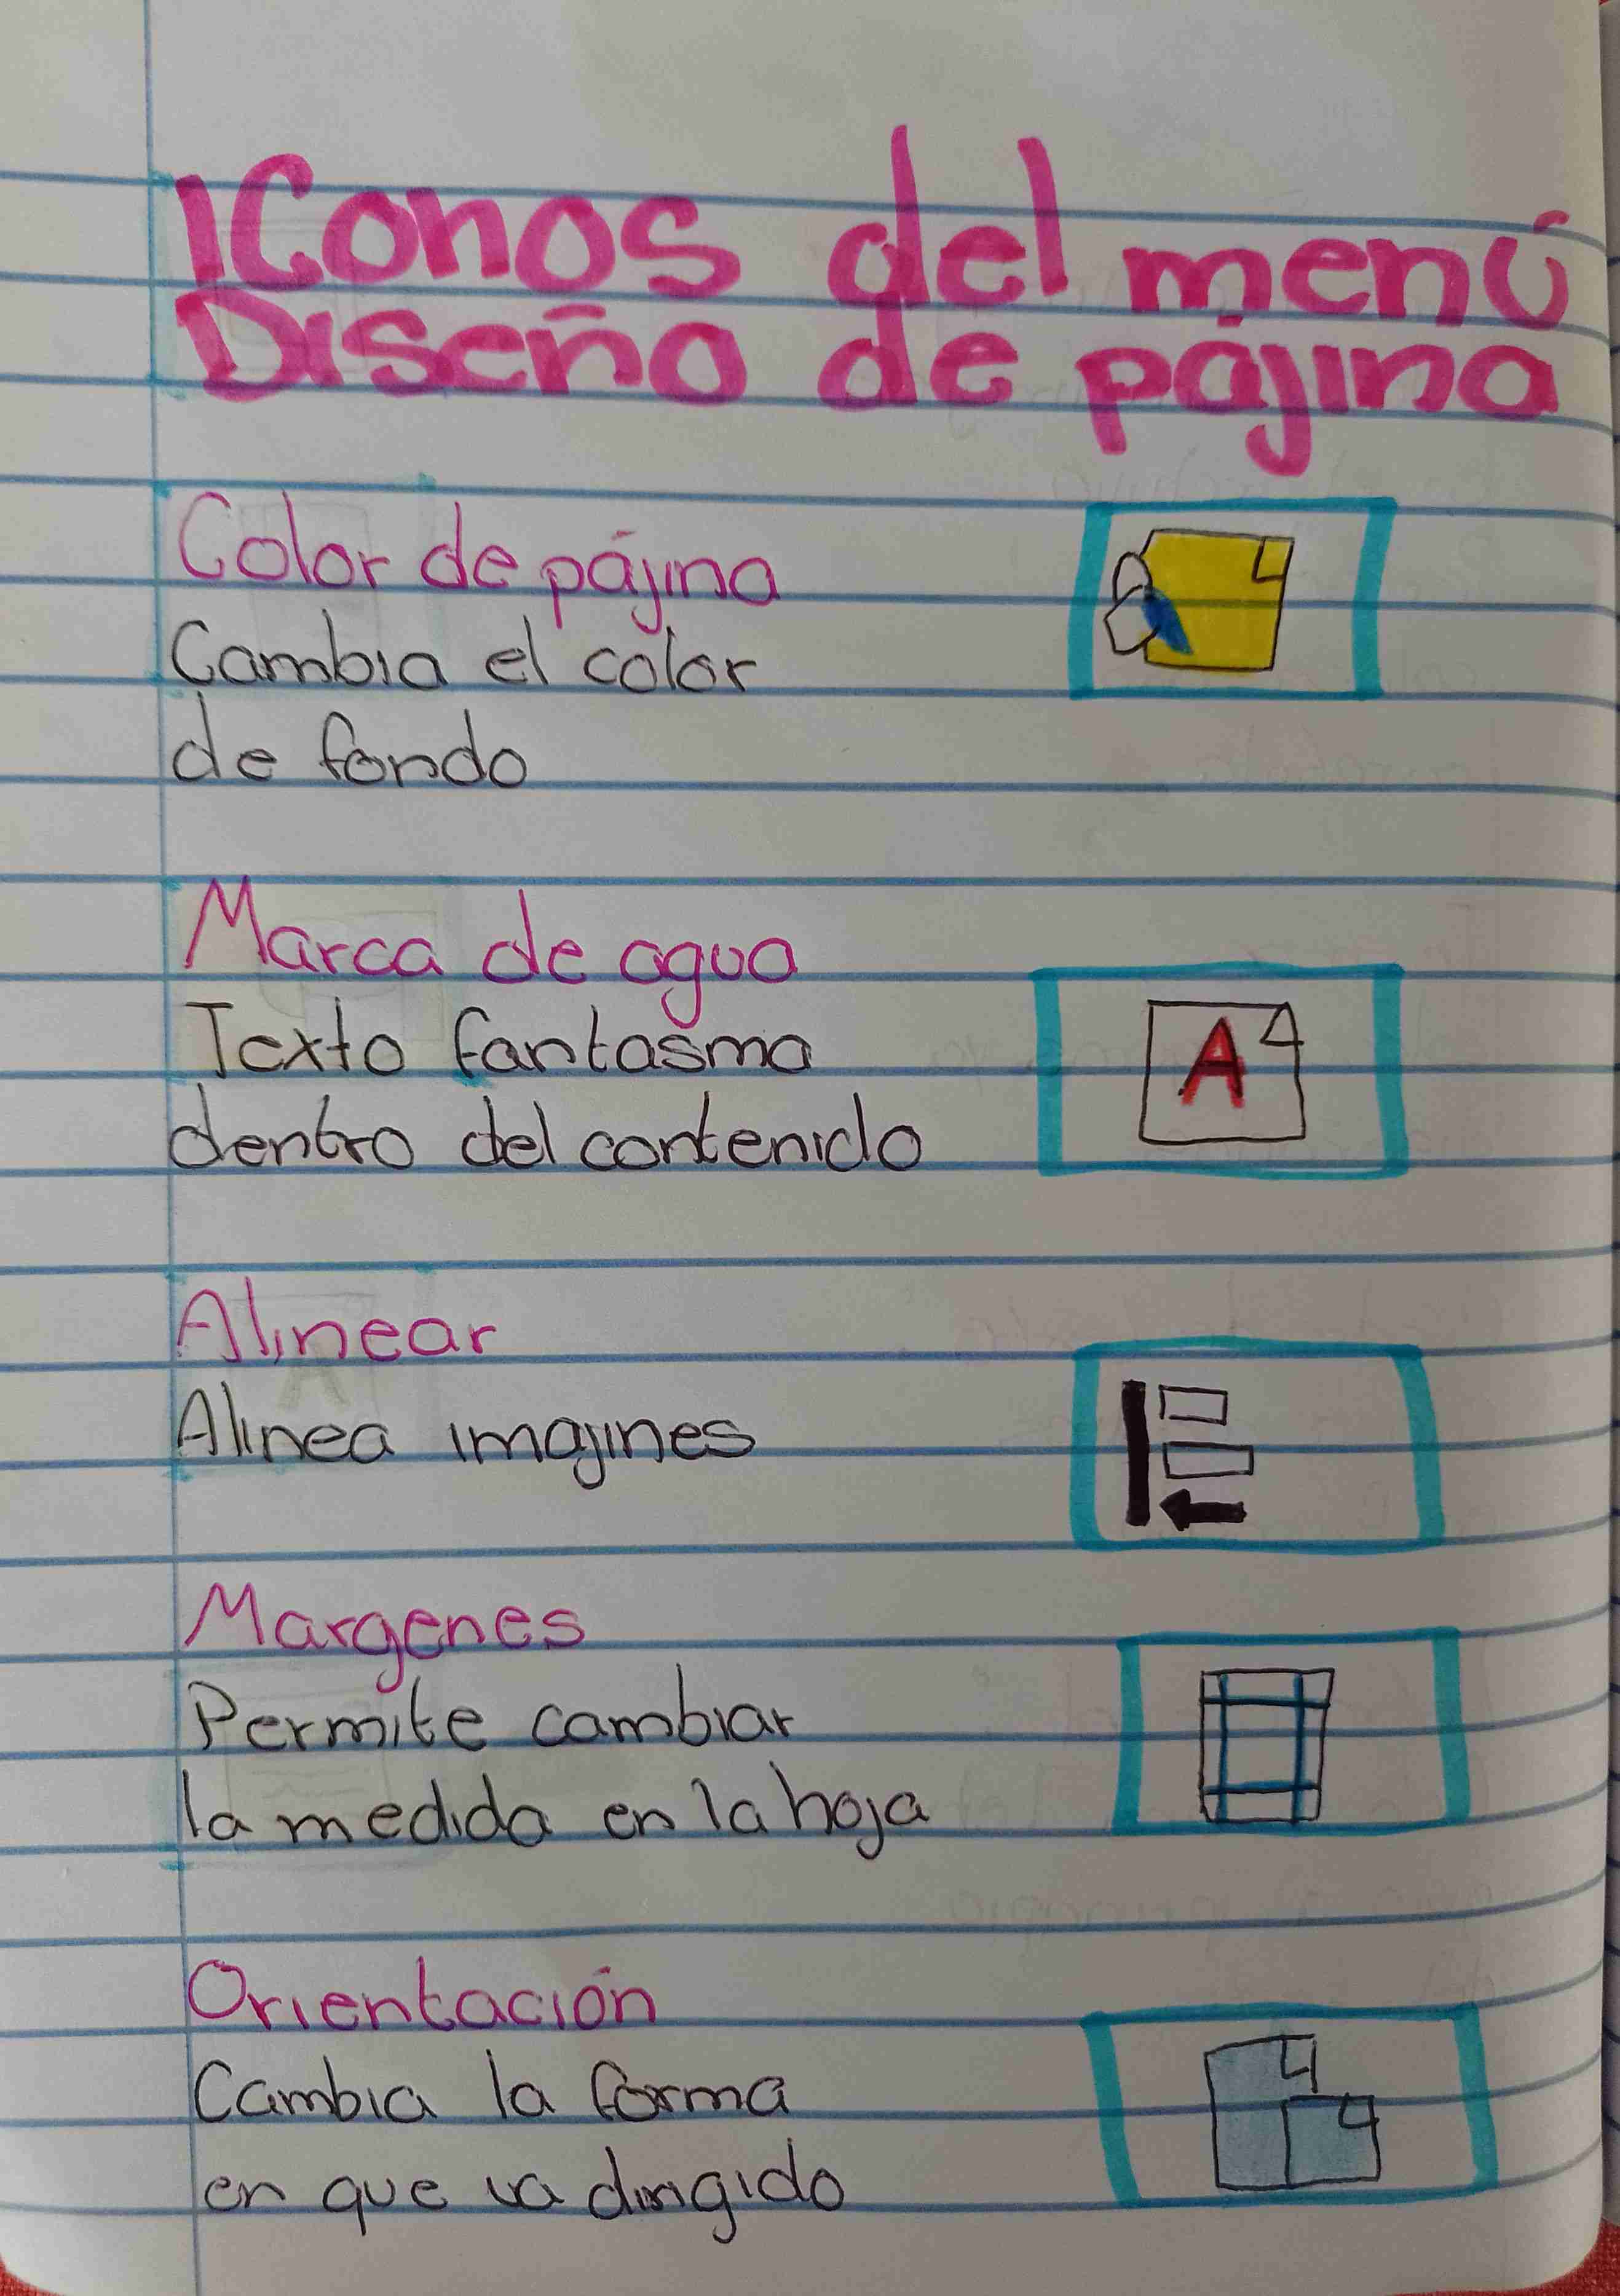 Iconos del menú
Diseño de pájina
Color de pájina
Cambia el color
de fondo
Marca de agua
Texto fantasma
dentro del contenido
A
Alinear
Alinea imajines
Margenes
Permite cambiar
la medida en la hoja
Orientación
Cambia la forma
en que va dirigido